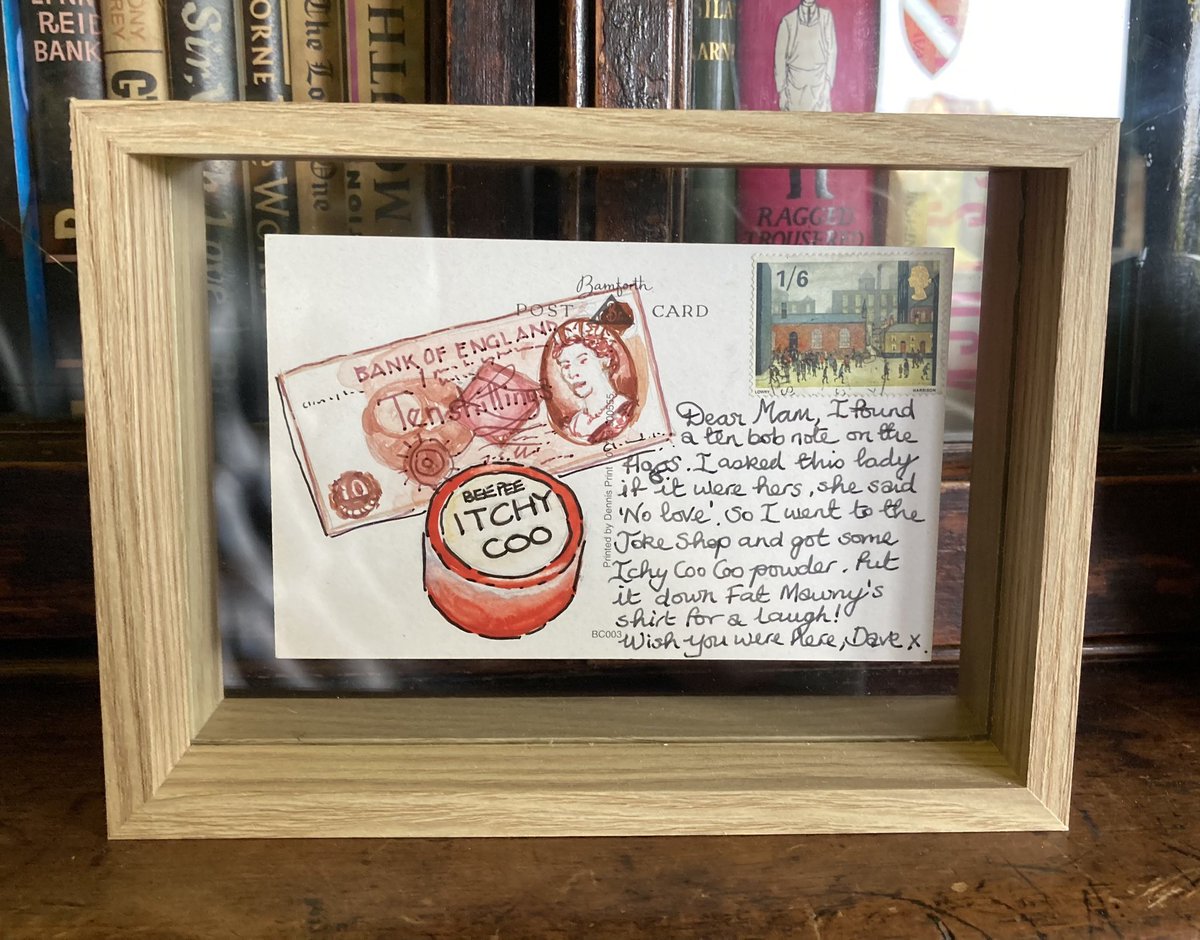 LYNN
REID
BANK
Sir,
Love
ORNE
The
One
RAGGED
TROUSERED
Bamforth
POST CARD
1/6
LOWRY HARRISON
BANK OF ENGLAND
Ten shillings
10
BEEPEE
ITCHY
COO
Printed by Dennis Print
BC003
Dear Mam, I found
a ten bob note on the
Flags. I asked this lady
if it were hers, she said
'No love'. So I went to the
Joke Shop and got some
Itchy Coo Coo powder. Put
it down Fat Mowny's
shirt for a laugh!
Wish you were here, Dave x.